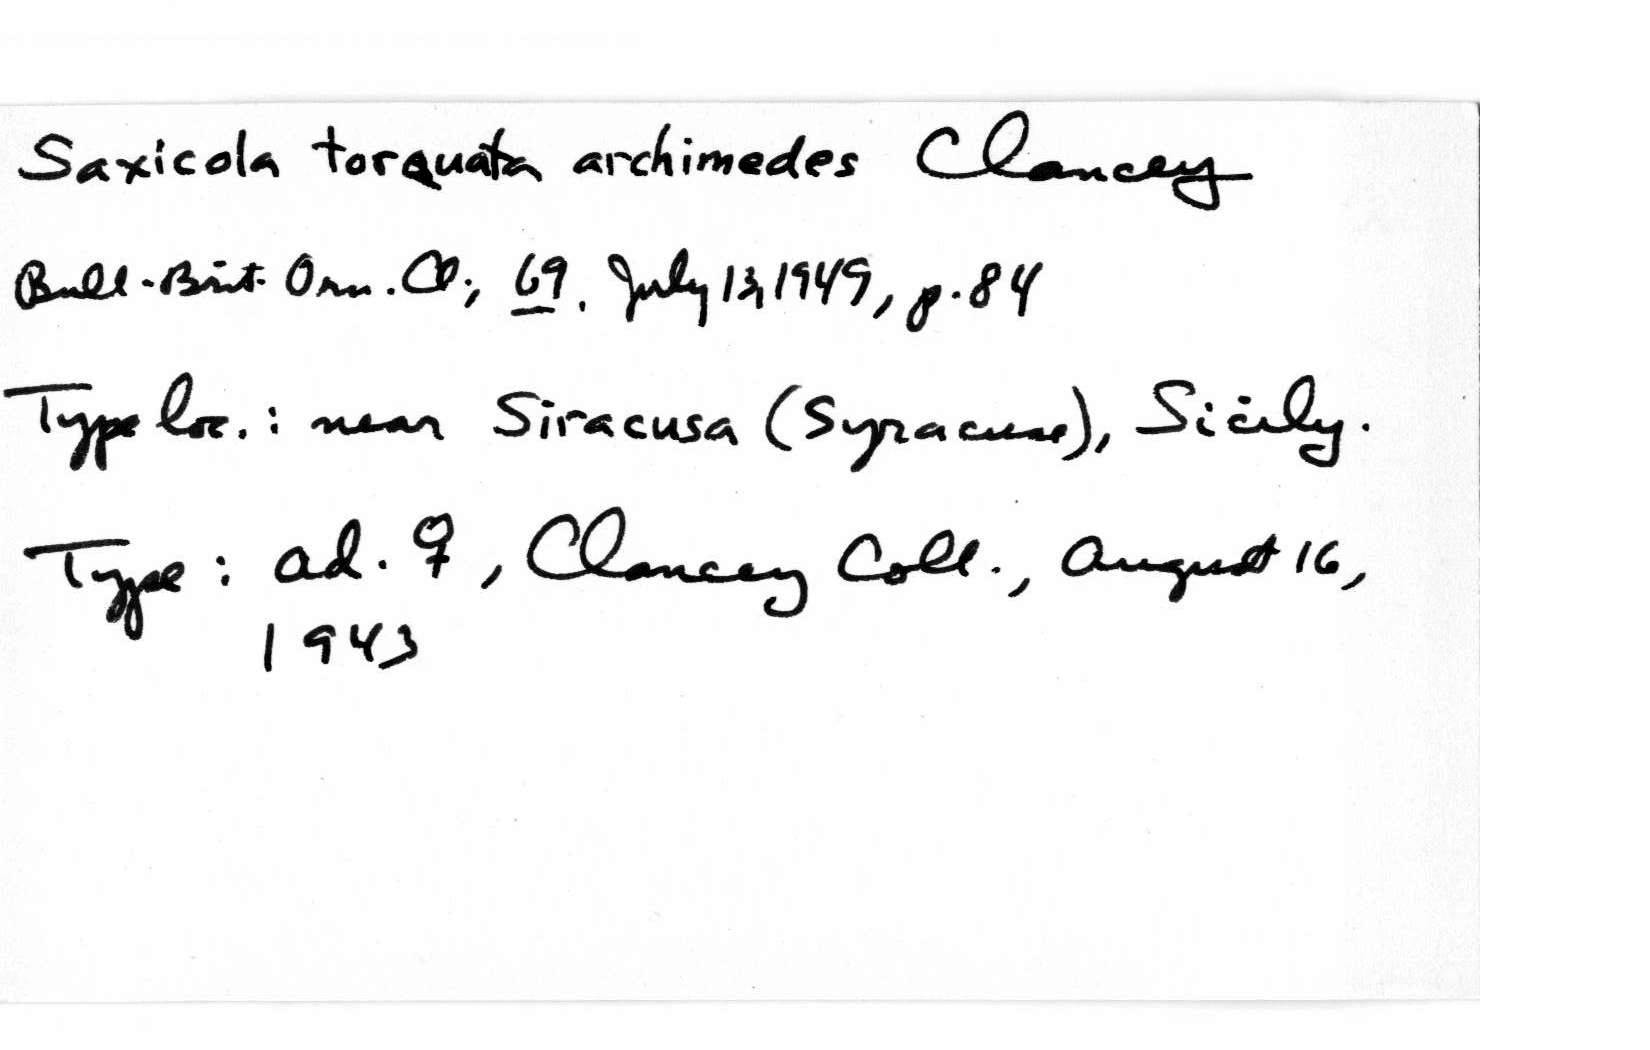 Saxicola torquata archimedes Clancey
Bull. Brit. Orn. Cl., 69, July 13, 1949, p. 84
Type loc.: near Siracusa (Syracuse), Sicily.
Type: ad. ♀, Clancey Coll., August 16,
1943